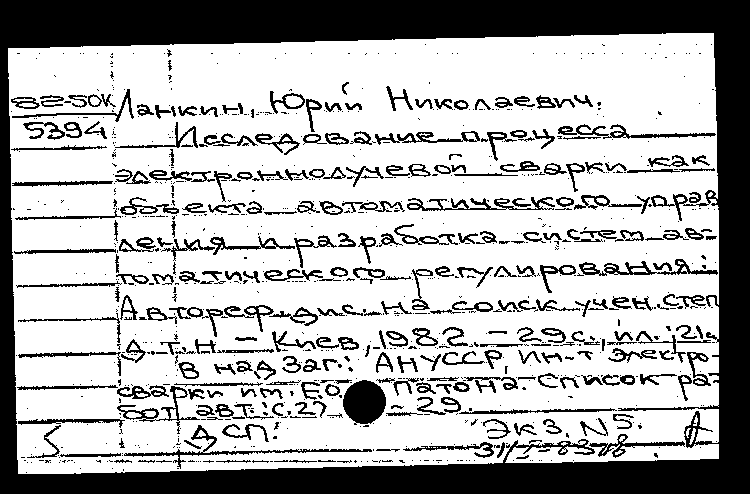 82-50К Ланкин, Юрий Николаевич.
5394 Исследование процесса
электроннолучевой сварки как
объекта автоматического управ
ления и разработка систем ав-
томатического регулирования:
Автореф. дис. на соиск учен. степ
д. т. н - Киев, 1982 - 29 с., ил.; 21
В над заг.: АН УССР, Ин-т электро-
сварки им. Е.О. Патона. Список ра-
бот авт.: с. 27 - 29.
ДСП! Экз. N 5.